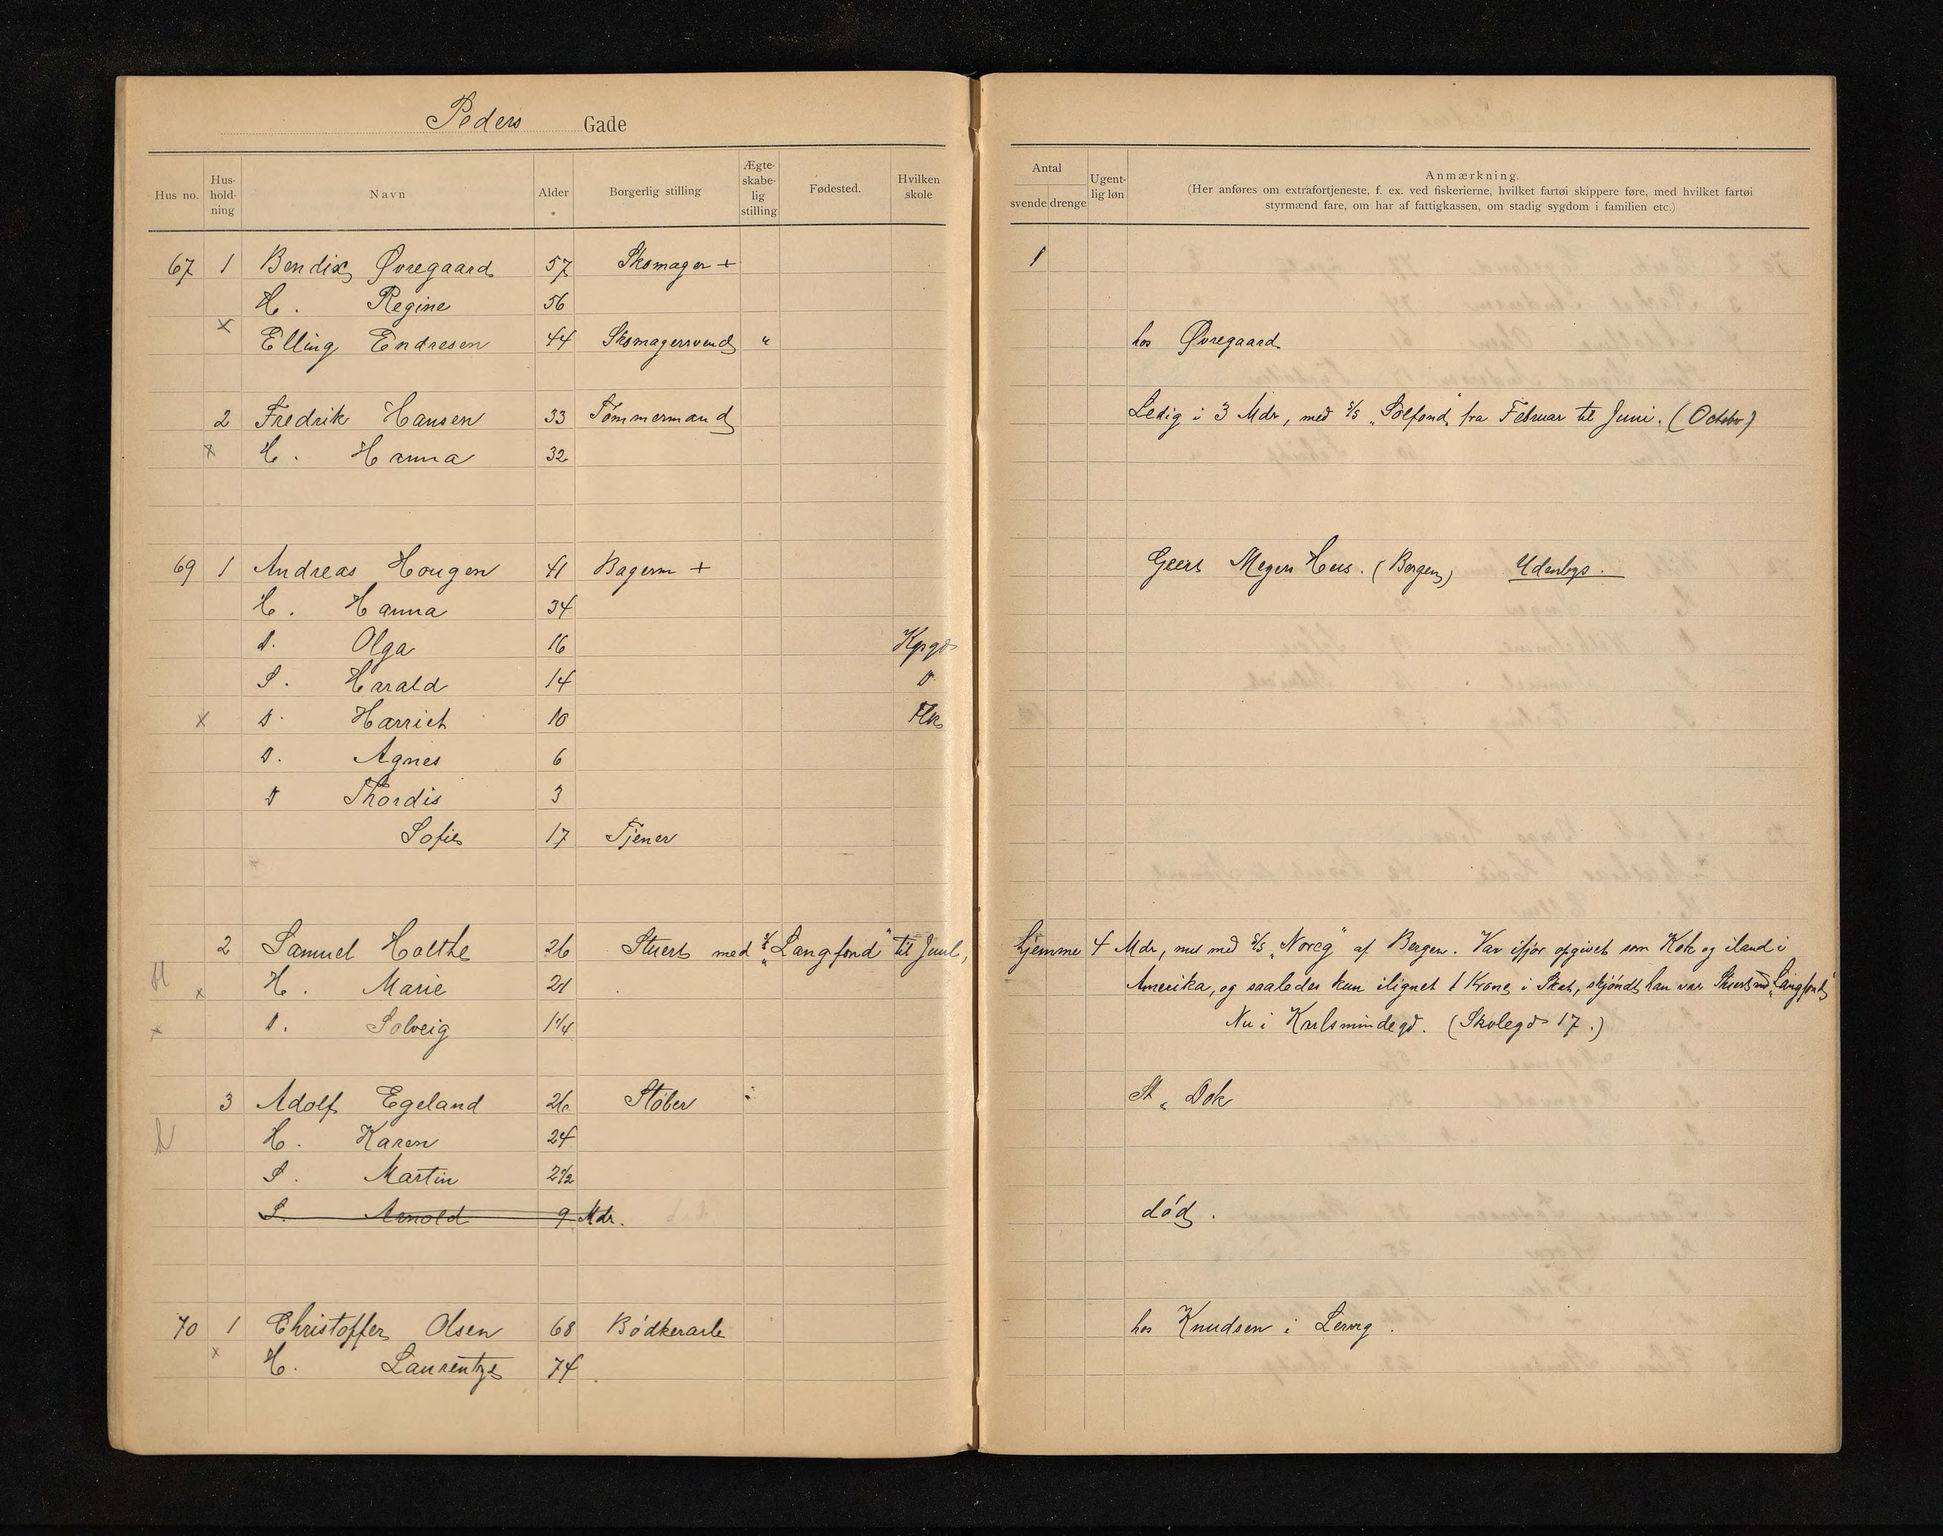 Peders Gade
Hus no. Hus-hold-ning Navn Alder Borgerlig stilling Ægte-skabe-lig stilling Fødested. Hvilken skole Antal svende drenge Ugent-lig løn Anmærkning.
(Her anføres om extrafortjeneste, f. ex. ved fiskerierne, hvilket fartøi skippere føre, med hvilket fartøi
styrmænd fare, om har af fattigkassen, om stadig sygdom i familien etc.)
67 1 Bendix Øvregaard 57 Skomager + 1
H. Regine 56
x Elling Endresen 44 Skomagersvend " hos Øvregaard
2 Fredrik Hansen 33 Tømmermand Ledig i 3 Mdr, med S/S "Solfond" fra Februar til Juni. (October)
x H. Hanna 32
69 1 Andreas Hougen 41 Bagerm + Geert Meyers Hus. (Bergen) Udenbys.
H. Hanna 34
D. Olga 16 Kgsgd
S. Harald 14 D
x D. Harriet 10 Flk
D. Agnes 6
D Thordis 3
Sofie 17 Tjener
2 Samuel Holthe 26 Stuert med S/S "Langfond" til Juul, hjemme 4 Mdr, nu med S/S "Noreg" af Bergen. Var ifjor opgivet som Kok og iland i
x H. Marie 21 Amerika, og saaledes kun ilignet 1 Krone i Skat, skjöndt han var Stuert med "Langfond"
x D. Solveig 1 1/4 Nu i Karlsmindegd. (Skolegd 17.)
3 Adolf Egeland 26 Støber St " Dok
H. Karen 24
S. Martin 2 1/2
S. Arnold 9 Mdr. död.
70 1 Christoffer Olsen 68 Bödkerarb hos Knudsen i Lervig.
x H. Laurentze 74